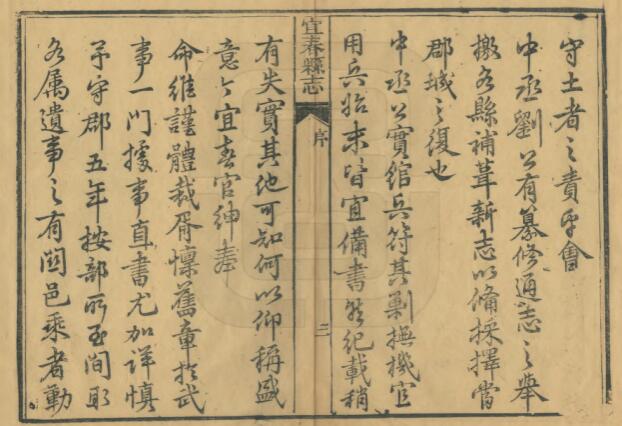 守土者之責乎會
中丞劉公有纂修通志之舉
檄各縣補葺新志以備採擇當
郡城之復也
中丞公實綰兵符其剿撫機宜
用兵始末皆宜備書然紀載稍
宜春縣志
序
三
有失實其他可知何以仰稱盛
意乎宜春官紳奉
命維謹體裁胥懍舊章於武
事一門據事直書尤加詳慎
予守郡五年按部所至間取
各属遺事之有関邑乘者勤